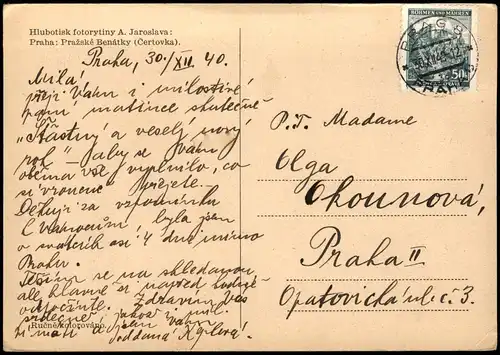 Hlubotisk fotorytiny A. Jaroslava:
Praha: Pražské Benátky (Čertovka).
Praha, 30./XII. 40.
Milá!
přeji Vám i milostivé
paní matince skutečně
"Šťastný a veselý nový
rok" – aby se Vám
oběma vše vyplnilo, co
si vroucně přejete.
Děkuji za vzpomínku
k Vánocům, byla jsem
o svátcích asi 4 dni mimo
Prahu.
Těším se na shledanou
ale hlavně si napřed hodně
odpočiňte. Zdraví Vás
srdečně jakož i mil.
oddaná
Ručně kolorováno.
BÖHMEN UND MÄHREN
50
PRAG 8
PRAHA
P.T. Madame
Olga
Okounová,
Praha II
Opatovická ul. č. 3.